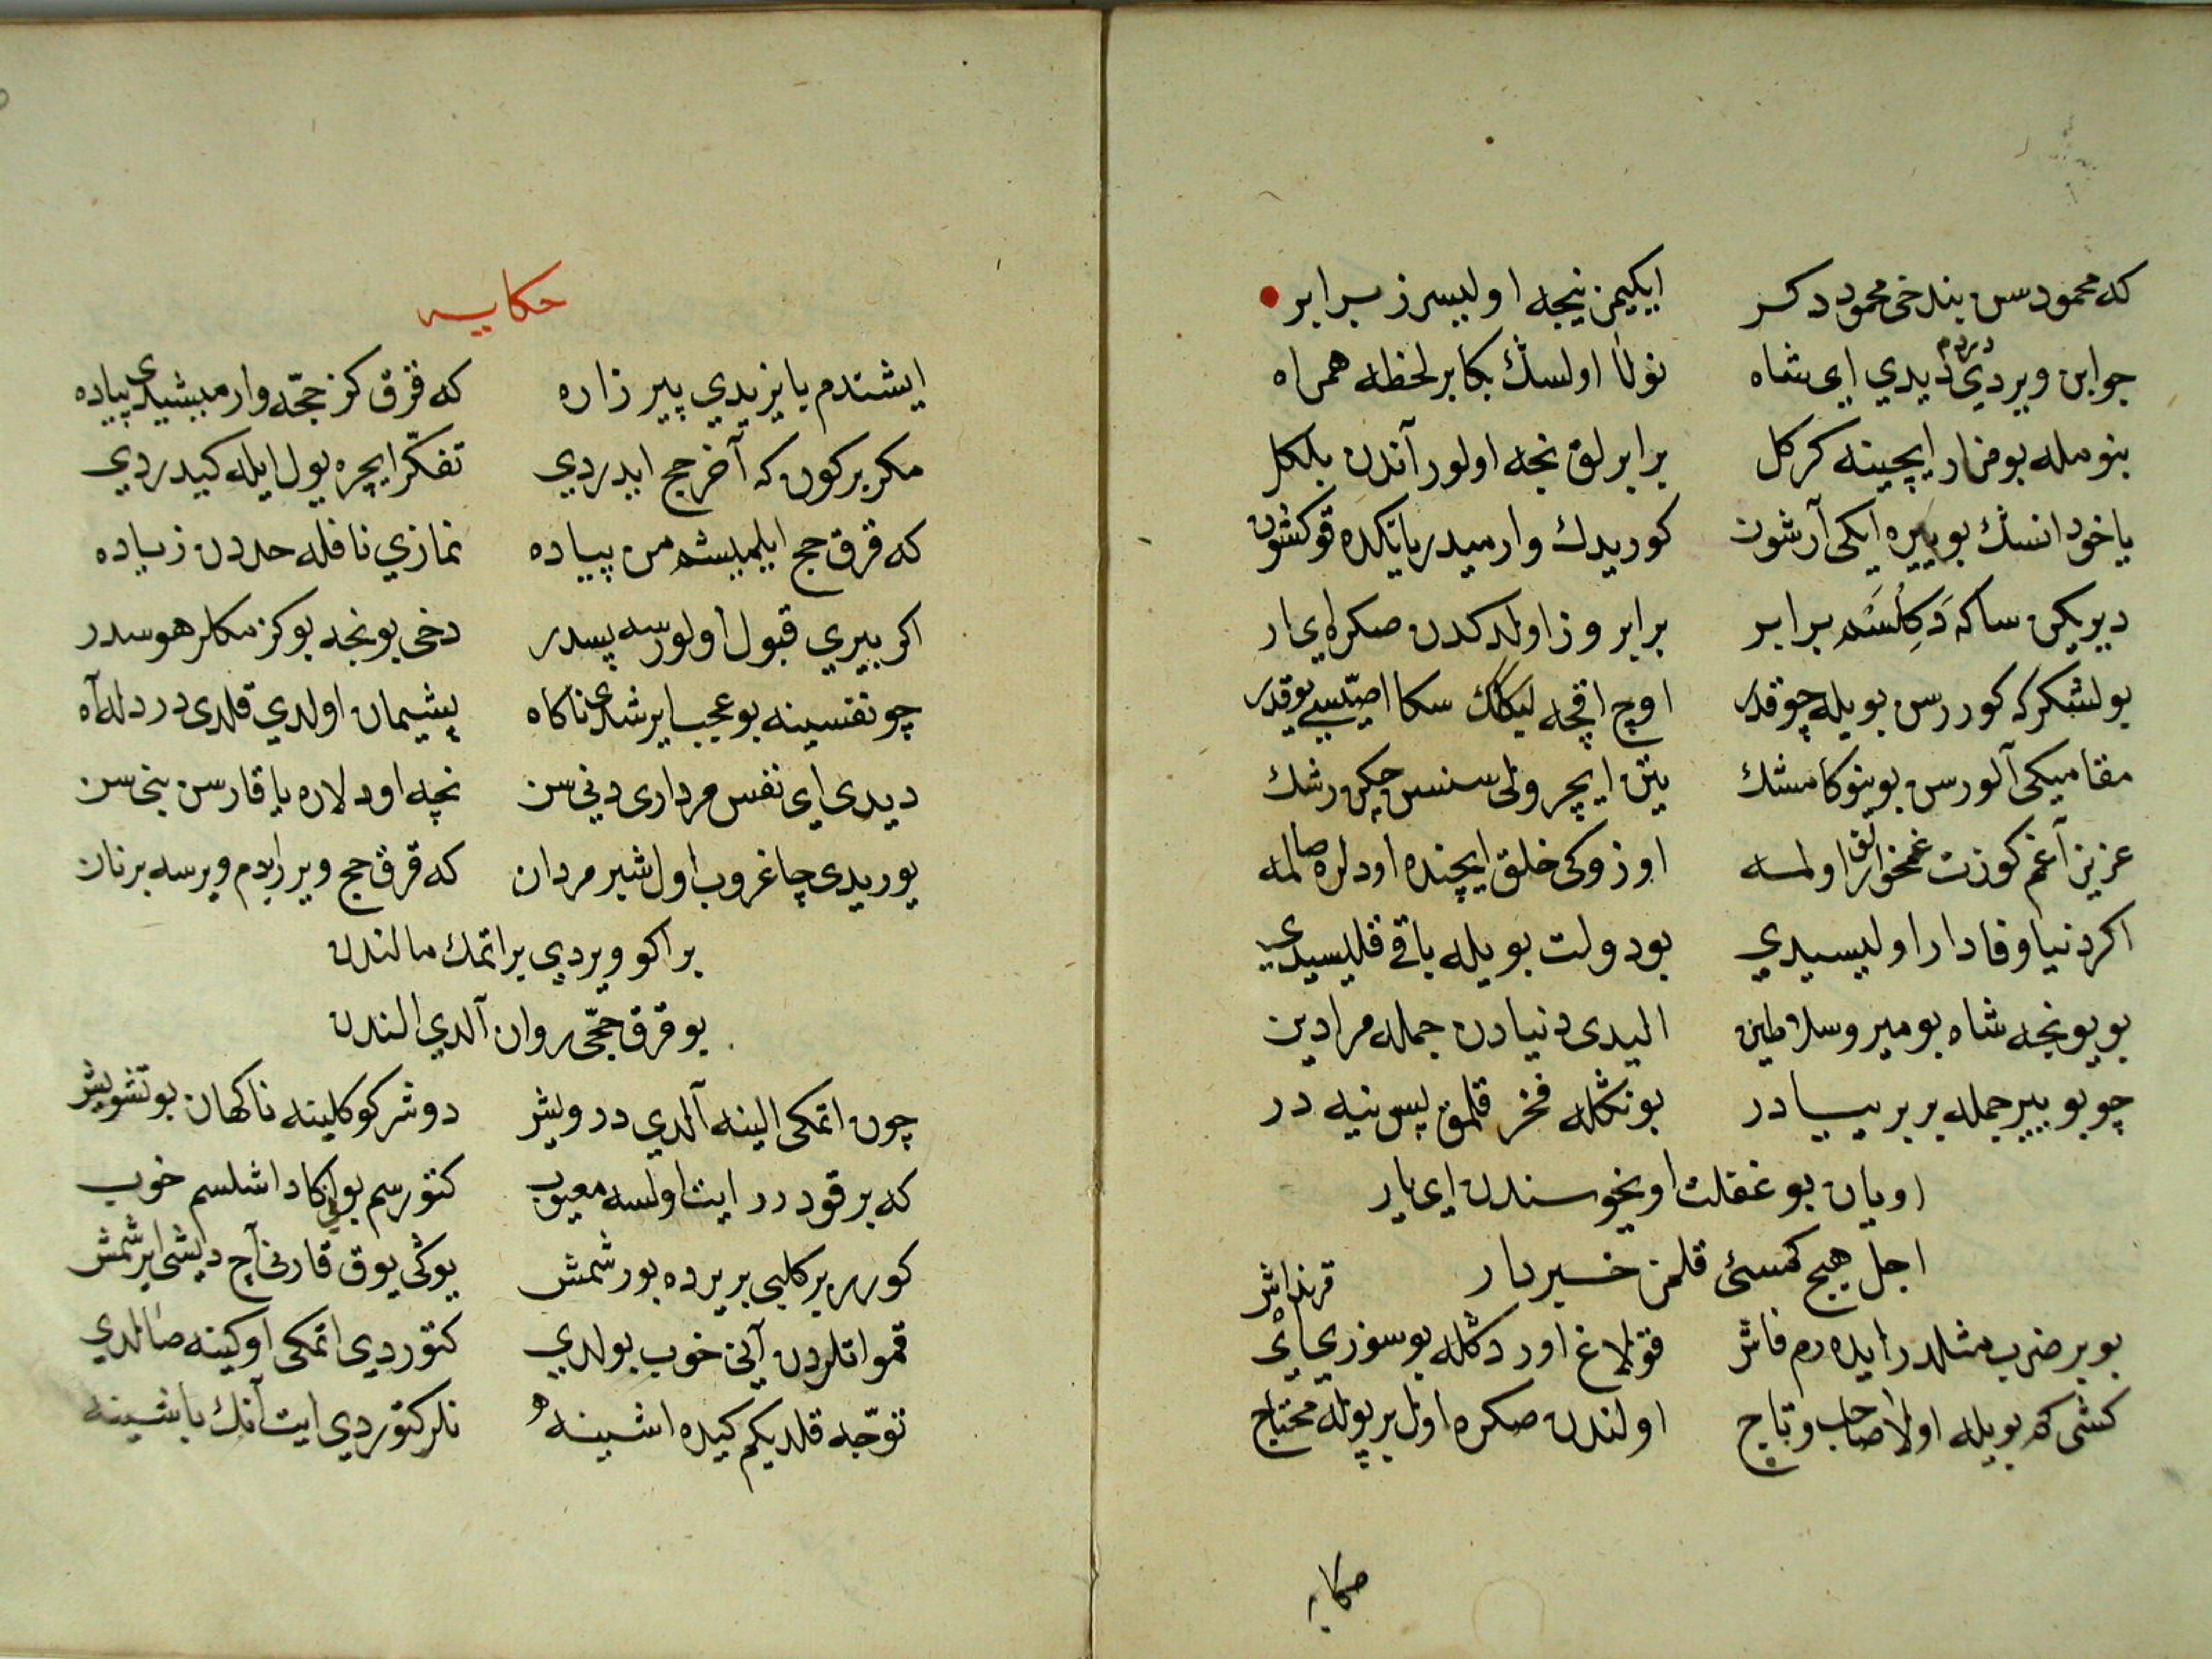 که محمودسن بن دخی محمود دکر ایکیمز نیجه اولیسرز برابر
جوابن ویردی دردم دیدی ای شاه نولا اولسڭ بکا بر لحظه همراه
بنومله بو مزار ایچینه کرکل برابرلق نجه اولور آندن بلکل
یا خود انسڭ بو ییره ایکی آرشون کوریدك وارمیدر یاتکده
دیریکن ساکه دکلسه برابر برابروز اولدکدن صکره ای یار
بو لشکر که کوررسن بویله چوقدر اوچ اقچه لیکلك سکا اصیسی یوقدر
مقامیکی آلورسن بوینوکا مشك یتن ایچرولی سنسن چکن رشك
عزیز آغم کوزت غمخوارلق اولمسه اوزوکی خلق ایچنده اودلره صالمه
اکر دنیا وفادار اولیسیدی بو دولت بویله باقی قلیسیدی
بو یونجه شاه بو میر و سلاطین الیدی دنیادن جمله مرادین
چو بو بییر جمله بر بر یبیادر بونکله فخر قلمق پس نیه در
اویان بو غفلت اویخوسندن ای یار
اجل هیچ کمسئی قلمز خبردار
بو بر ضرب مثلدر ایده رم فاش قولاغ اور دکله بو سوزی ای قرنداش
کشی که بویله اولا صاحب و تاج اولندن صکره اول بر پوله محتاج
حکایه
حکایه
ایشتدم بایزیدی پیر زاره که قرق کز حجّه وارمیشیدی پیاده
مکر بر کون که آخر حج ایدردی تفکّر ایچره یول ایله کیدردی
که قرق حج ایلمیشم من پیاده نمازی نافله حددن زیاده
اکر بیری قبول اولورسه پسدر دخی بونجه بو کزمکلر هوسدر
چو نفسینه بو عجب ایرشدی ناکاه پشیمان اولدی قلدی درد له آه
دیدی ای نفس مرداری دنی سن نچه اودلاره یاقارسن بنی سن
یوریدی چاغروب اول شیر مردان که قرق حج ویررایدم ویرسه بر نان
بر اکو ویردی بر اتمك مالندن
بو قرق حجّی روان آلدی الندن
چون اتمکی الینه آلدی درویش دوشر کوکلینه ناکهان بو تشویش
که بر قودر ایت اولسه معیوب کتورسم بوکا داشلسم خوب
کورر بر کلبی بر یرده بورشمش یوڭی یوق قارنی آچ دیشی ایرشمش
قمو اتلردن آنی خوب بولدی کتوردی اتمکی اوکینه صالدی
توجّه قلدیکم کیده اشینه نلر کتوردی ایت آنك باشینه